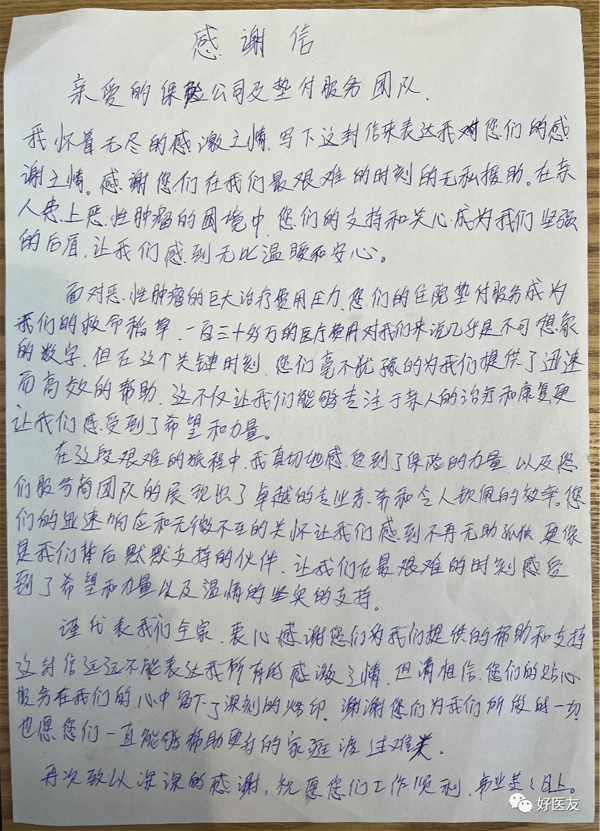 感谢信
亲爱的保险公司及垫付服务团队.
我怀着无尽的感激之情,写下这封信来表达我对您们的感
谢之情。感谢您们在我们最艰难的时刻的无私援助。在亲
人患上恶性肿瘤的困境中,您们的支持和关心,成为我们坚强
的后盾,让我们感到无比温暖和安心。
面对恶性肿瘤的巨大治疗费用压力,您们的住院垫付服务成为
我们的救命稻草,一百三十多万的医疗费用对我们来说几乎是不可想象
的数字,但在这个关键时刻,您们毫不犹豫的为我们提供了迅速
而高效的帮助,这不仅让我们能够专注于亲人的治疗和康复更
让我们感受到了希望和力量。
在这段艰难的旅程中,我真切地感受到了保险的力量,以及您
们服务商团队的展现出了卓越的专业素养和令人钦佩的效率。您
们的迅速响应和无微不至的关怀让我们感到不再无助孤独,更像
是我们背后默默支持的伙伴,让我们在最艰难的时刻感受
到了希望和力量以及温情的坚实的支持。
谨代表我们全家,衷心感谢您们为我们提供的帮助和支持
这封信远远不能表达我所有的感激之情,但请相信,您们的贴心
服务在我们的心中留下了深刻的烙印,谢谢您们为我们所做的一切
也愿您们一直能够帮助更多的家庭渡过难关.
再次致以深深的感谢,祝愿您们工作顺利,事业蒸蒸日上。
好医友